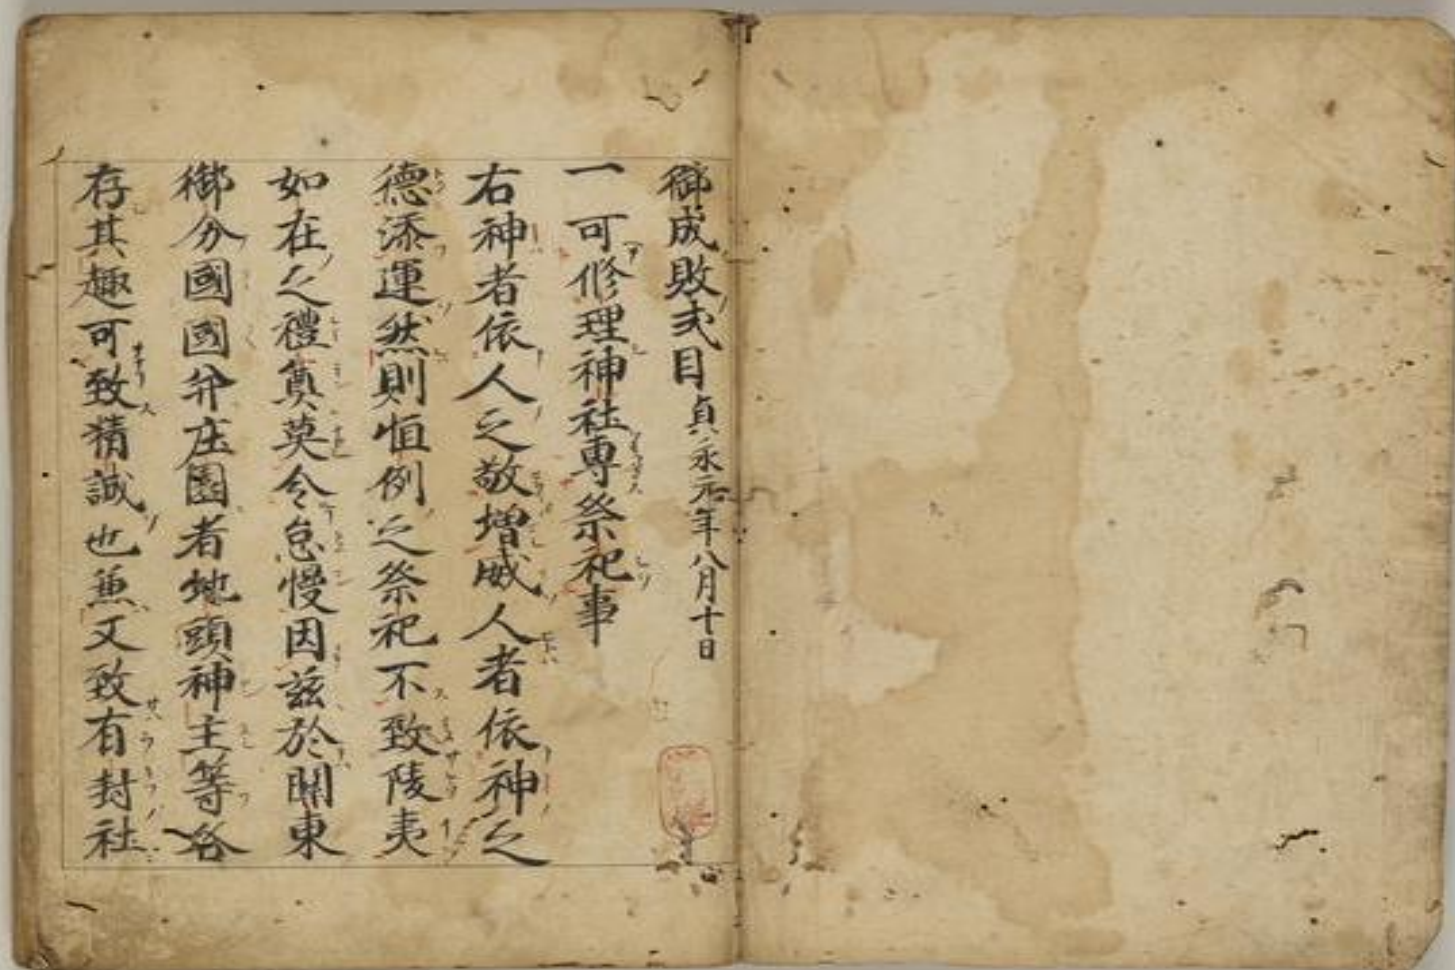 御成敗式目 貞永元年八月十日
一可修理神社専祭祀事
右神者依人之敬増威人者依神之
徳添運然則恒例之祭祀不致陵夷
如在之禮奠莫令怠慢因茲於関東
御分國國并庄園者地頭神主等各
存其趣可致精誠也兼又致有封社